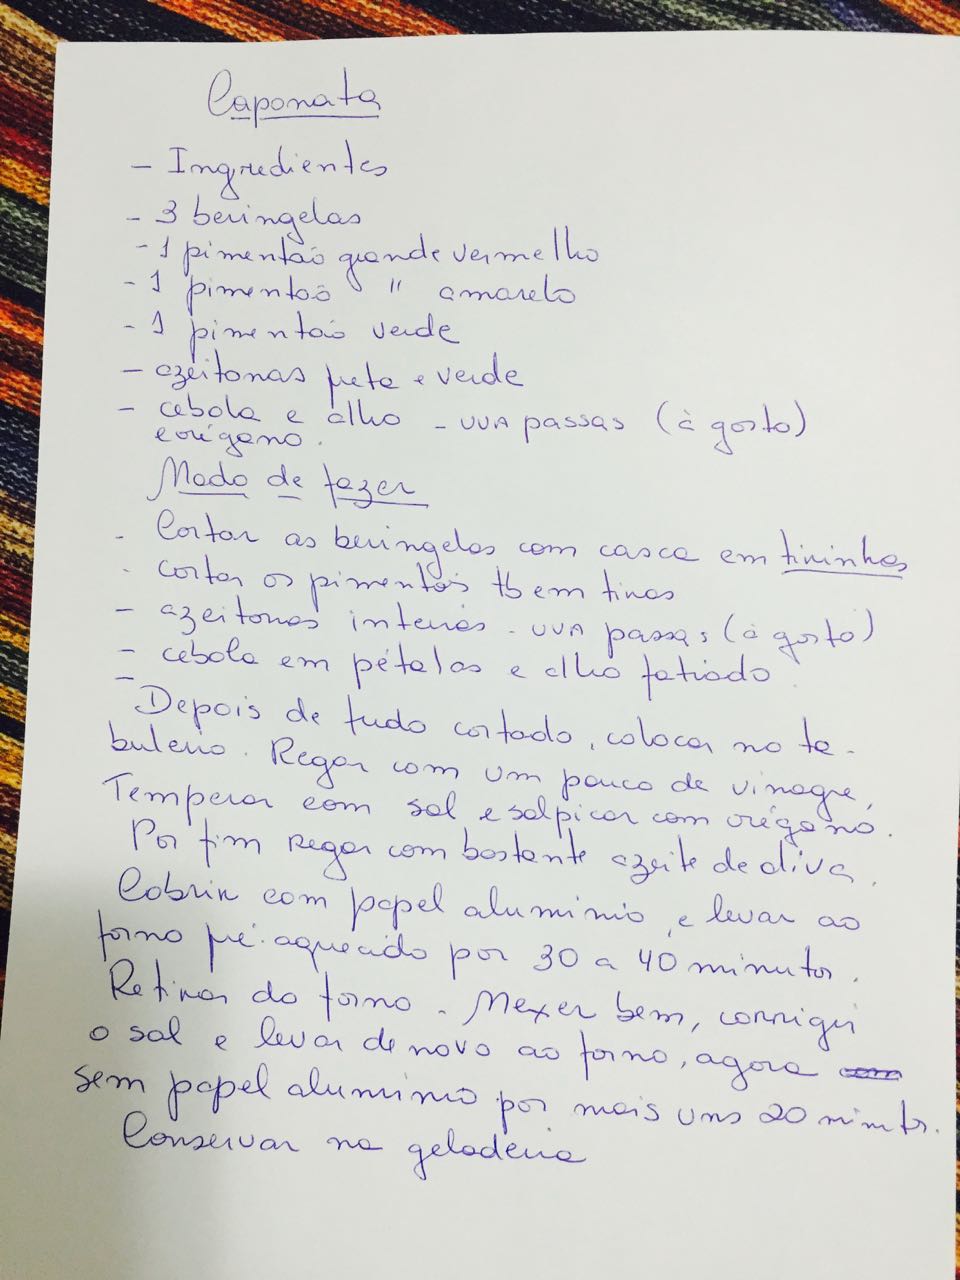 Caponata
- Ingredientes
- 3 beringelas
- 1 pimentão grande vermelho
- 1 pimentão " amarelo
- 1 pimentão verde
- azeitonas preta e verde
- cebola e alho - uva passas (à gosto)
e orégano.
Modo de fazer
- Cortar as beringelas com casca em tirinhas
- cortar os pimentões tb em tiras
- azeitonas inteiras - uva passas (à gosto)
- cebola em pétalas e alho fatiado.
-
Depois de tudo cortado, colocar no ta-
buleiro. Regar com um pouco de vinagre,
Temperar com sal e salpicar com orégano.
Por fim regar com bastante azeite de oliva.
Cobrir com papel aluminio, e levar ao
forno pré-aquecido por 30 a 40 minutos.
Retirar do forno. Mexer bem, corrigir
o sal e levar de novo ao forno, agora
sem papel aluminio por mais uns 20 minutos.
Conservar na geladeira